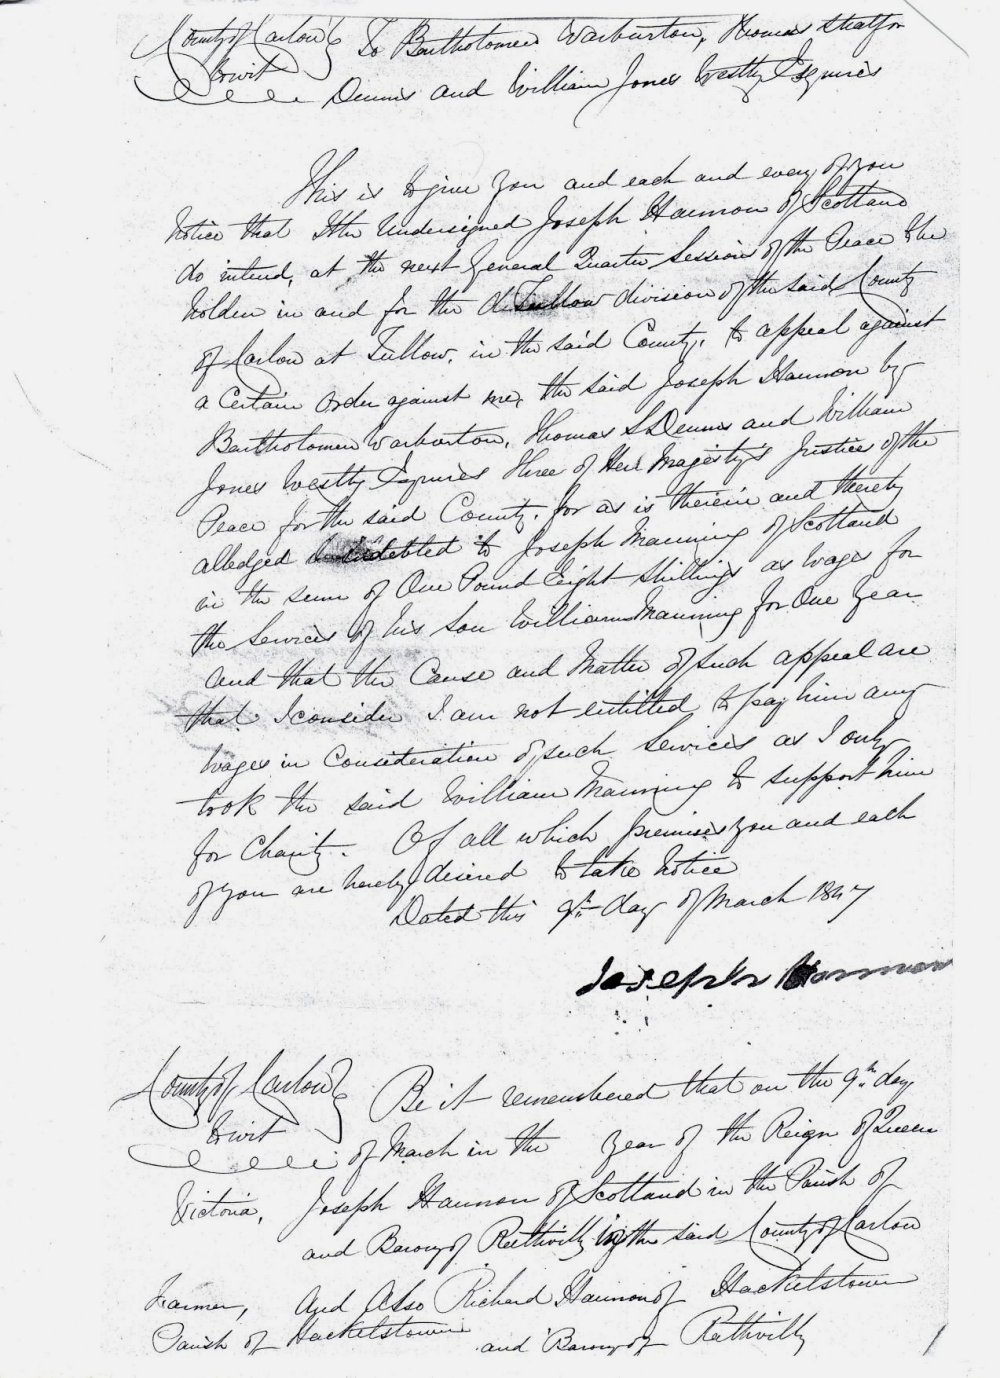 County of Carlow To Bartholomew Warburton, Thomas Stratfor
to wit Dennis and William Jones Westby Esquires
This is to give you and each and every of you
Notice that I the Undersigned Joseph Hannon of Scotland
do intend, at the next General Quarter Session of the Peace to be
holden in and for the Tullow division of the said County
of Carlow at Tullow, in the said County, to appeal against
a Certain Order against me, the said Joseph Hannon by
Bartholomew Warburton, Thomas S Dennis and William
Jones Westby Esquires three of Her Majesty's Justices of the
Peace for the said County. for as is therein and thereby
alledged indebted to Joseph Manning of Scotland
in the sum of One Pound Eight Shillings as wages for
the Services of his son William Manning for One Year
and that the Cause and Matter of such appeal are
that I consider I am not entitled to pay him any
Wages in Consideration of such Services as I only
took the said William Manning to support him
for Charity. Of all which premises you and each
of you are hereby desired to take Notice
Dated this 9th day of March 1847
Joseph Hannon
County of Carlow Be it remembered that on the 9th day
to wit of March in the year of the Reign of Queen
Victoria, Joseph Hannon of Scotland in the Parish of
and Barony of Rathvilly in the said County of Carlow
Farmer, And Also Richard Hannon of Hacketstown
Parish of Hacketstown and Barony of Rathvilly